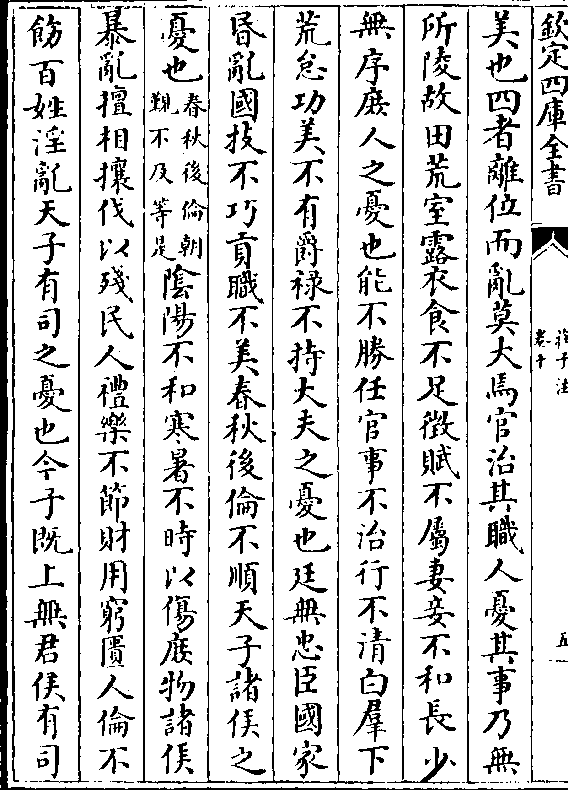 欽定四庫全書
莊子注
卷十
五
美也四者離位而亂莫大焉官治其職人憂其事乃無
所陵故田荒室露衣食不足徵賦不屬妻妾不和長少
無序庶人之憂也能不勝任官事不治行不清白羣下
荒怠功美不有爵禄不持大夫之憂也廷無忠臣國家
昏亂國技不巧貢職不美春秋後倫不順天子諸侯之
憂也春秋後倫朝
覲不及等是陰陽不和寒暑不時以傷庶物諸侯
暴亂擅相攘伐以殘民人禮樂不節財用窮匱人倫不
飭百姓淫亂天子有司之憂也今子既上無君侯有司